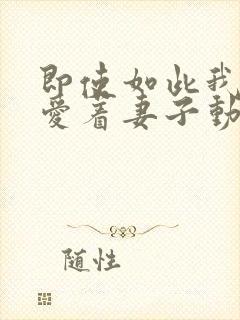 即使如此我
愛着妻子動
随性